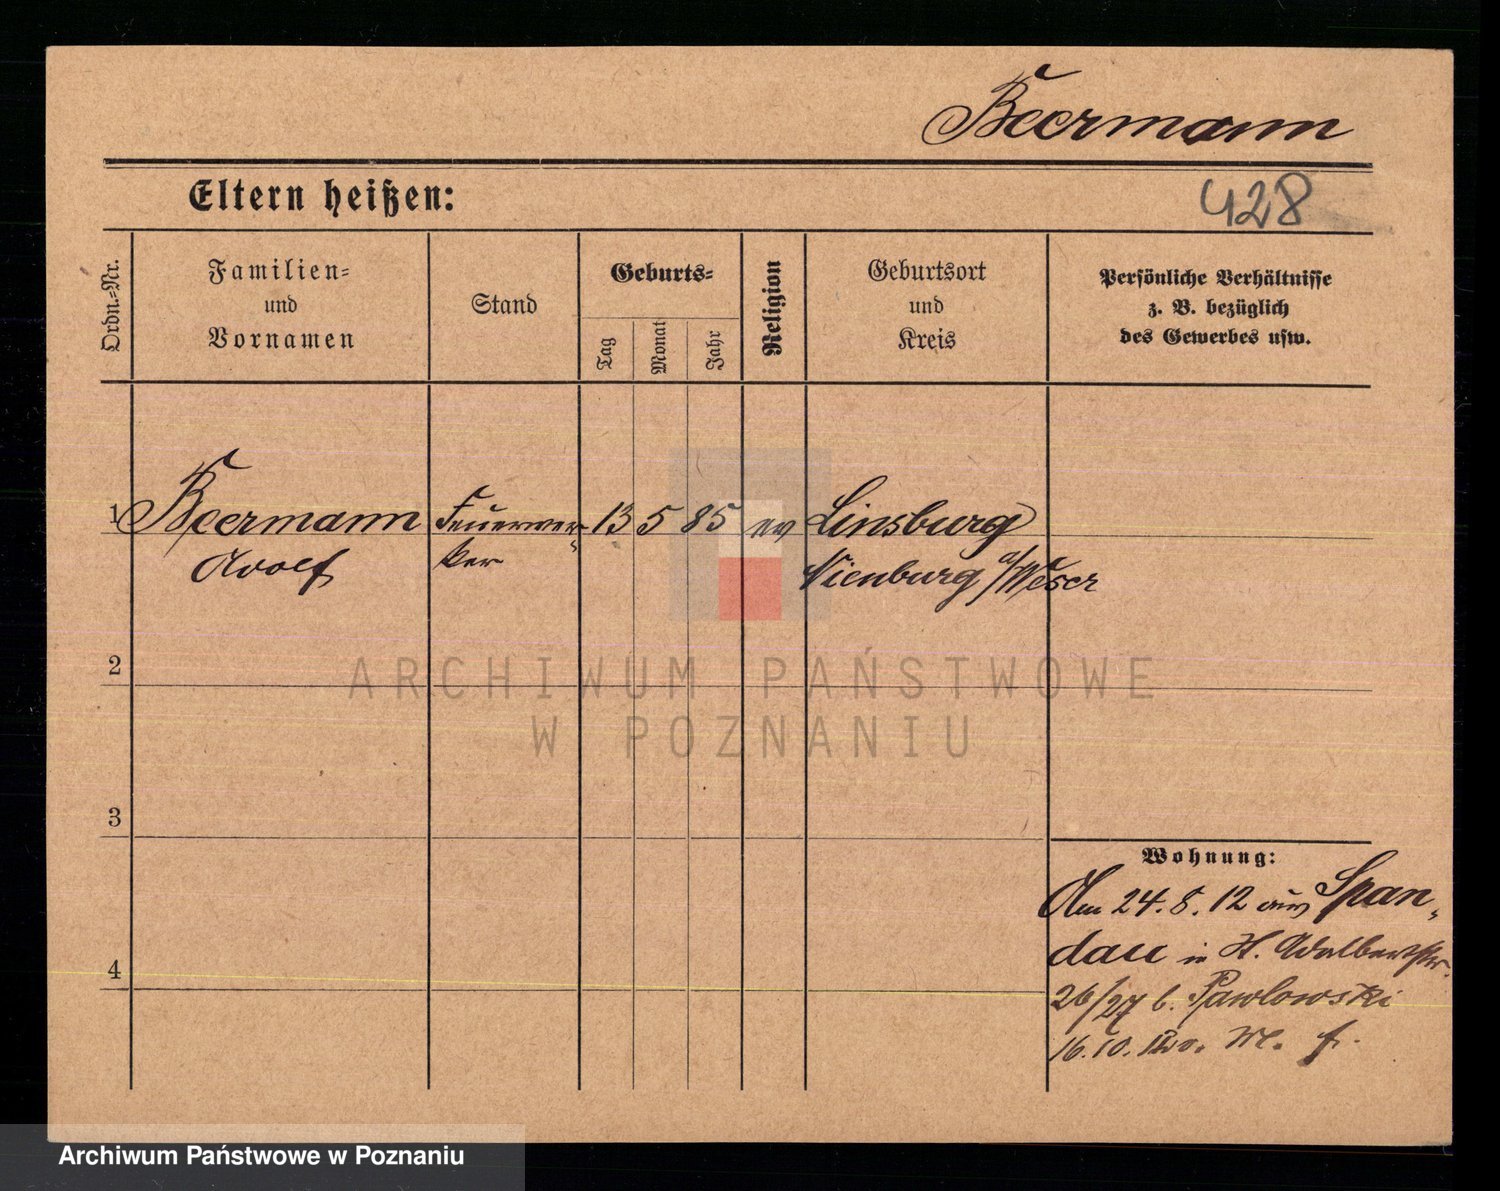 Beermann
Eltern heißen:
428
Ordn.-Nr.
Familien-
und
Vornamen
Stand
Geburts-
Tag
Monat
Jahr
Religion
Geburtsort
und
Kreis
Persönliche Verhältnisse
z. B. bezüglich
des Gewerbes usw.
1 Beermann Feuerwer- 13 5 85 ev Linsburg
Adolf ker Nienburg a/Weser
2
3
4
Wohnung:
Am 24.8.12 aus Span-
dau in H. Adalbertstr.
26/27 b. Pawlowski
16.10.12
ARCHIWUM PAŃSTWOWE
W POZNANIU
Archiwum Państwowe w Poznaniu